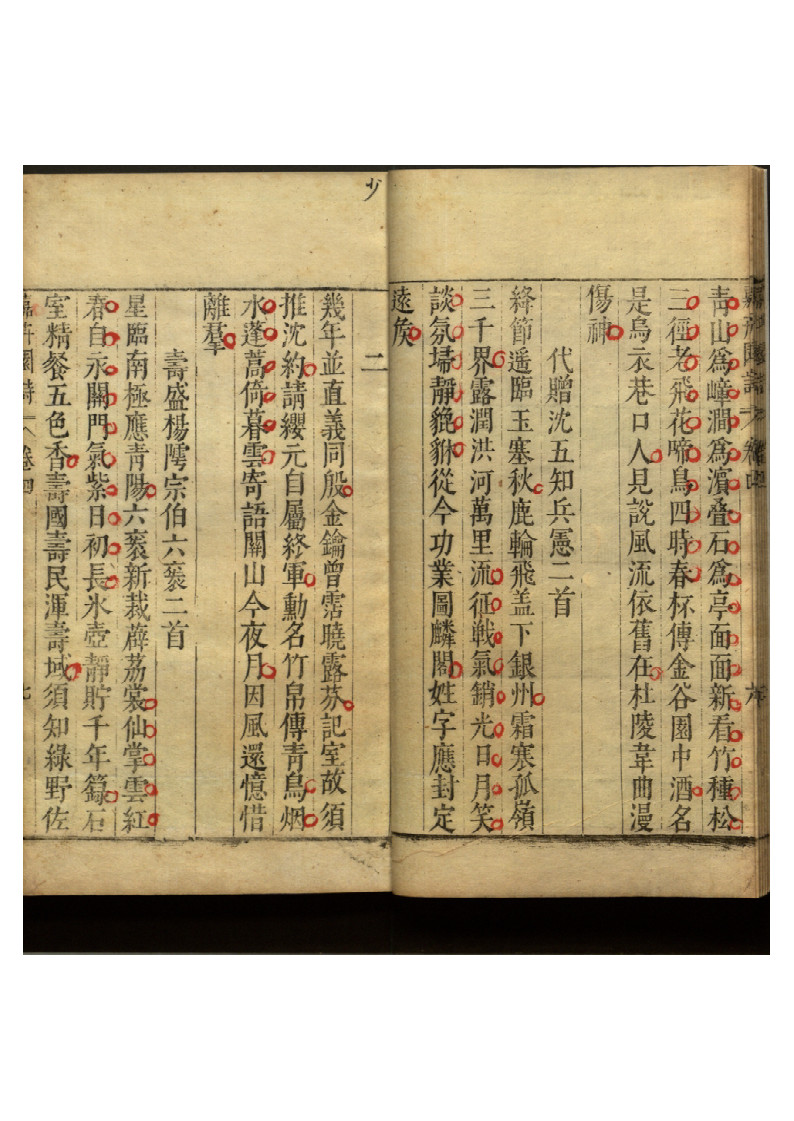 青山爲嶂澗爲濱叠石爲亭面面新看竹種松
三徑老飛花啼鳥四時春杯傳金谷園中酒名
是烏衣巷口人見說風流依舊在杜陵韋曲漫
傷神
代贈沈五知兵憲二首
絳節遥臨玉塞秋鹿輪飛盖下銀州霜寒孤嶺
三千界露潤洪河萬里流征戦氣銷光日月笑
談氛埽靜貔貅從今功業圖麟閣姓字應封定
遠侯
少
二
幾年並直義同殷金鑰曾霑曉露芬記室故須
推沈約請纓元自屬終軍勳名竹帛傳青鳥烟
水蓬蒿倚暮雲寄語關山今夜月因風還憶惜
離羣
壽盛楊
宗伯六袠二首
星臨南極應青陽六袠新裁薜荔裳仙掌雲紅
春自永關門氣紫日初長氷壺靜貯千年籙石
室精餐五色香壽國壽民渾壽域須知綠野佐
卷四
七